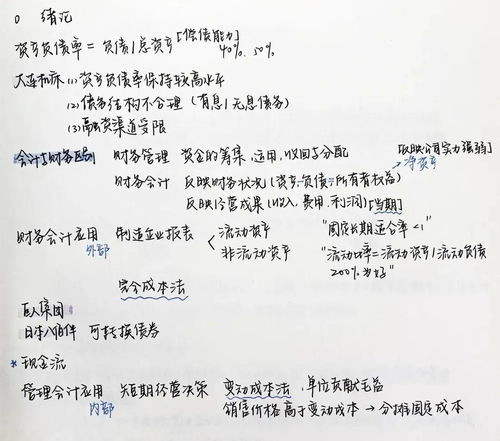 0 绪论
资产负债率 = 负债/总资产 [偿债能力]
40%. 50%
大连机床 (1) 资产负债率保持较高水平
(2) 债务结构不合理 (有息/无息债务)
(3) 融资渠道受限
会计与财务区别 财务管理 资金的筹集、运用、收回与分配 [反映公司实力强弱]
净资产
财务会计 反映财务状况 (资产-负债=所有者权益)
反映经营成果 (收入、费用、利润) [当期]
财务会计应用 制造企业报表 < 流动资产 "固定长期适合率<1"
外部 非流动资产 "流动比率=流动资产/流动负债
200%为好"
完全成本法
巨人集团
日本八佰伴 可转换债券
* 现金流
管理会计应用 短期经营决策 变动成本法、单位贡献毛益
内部 销售价格高于变动成本 → 分摊固定成本